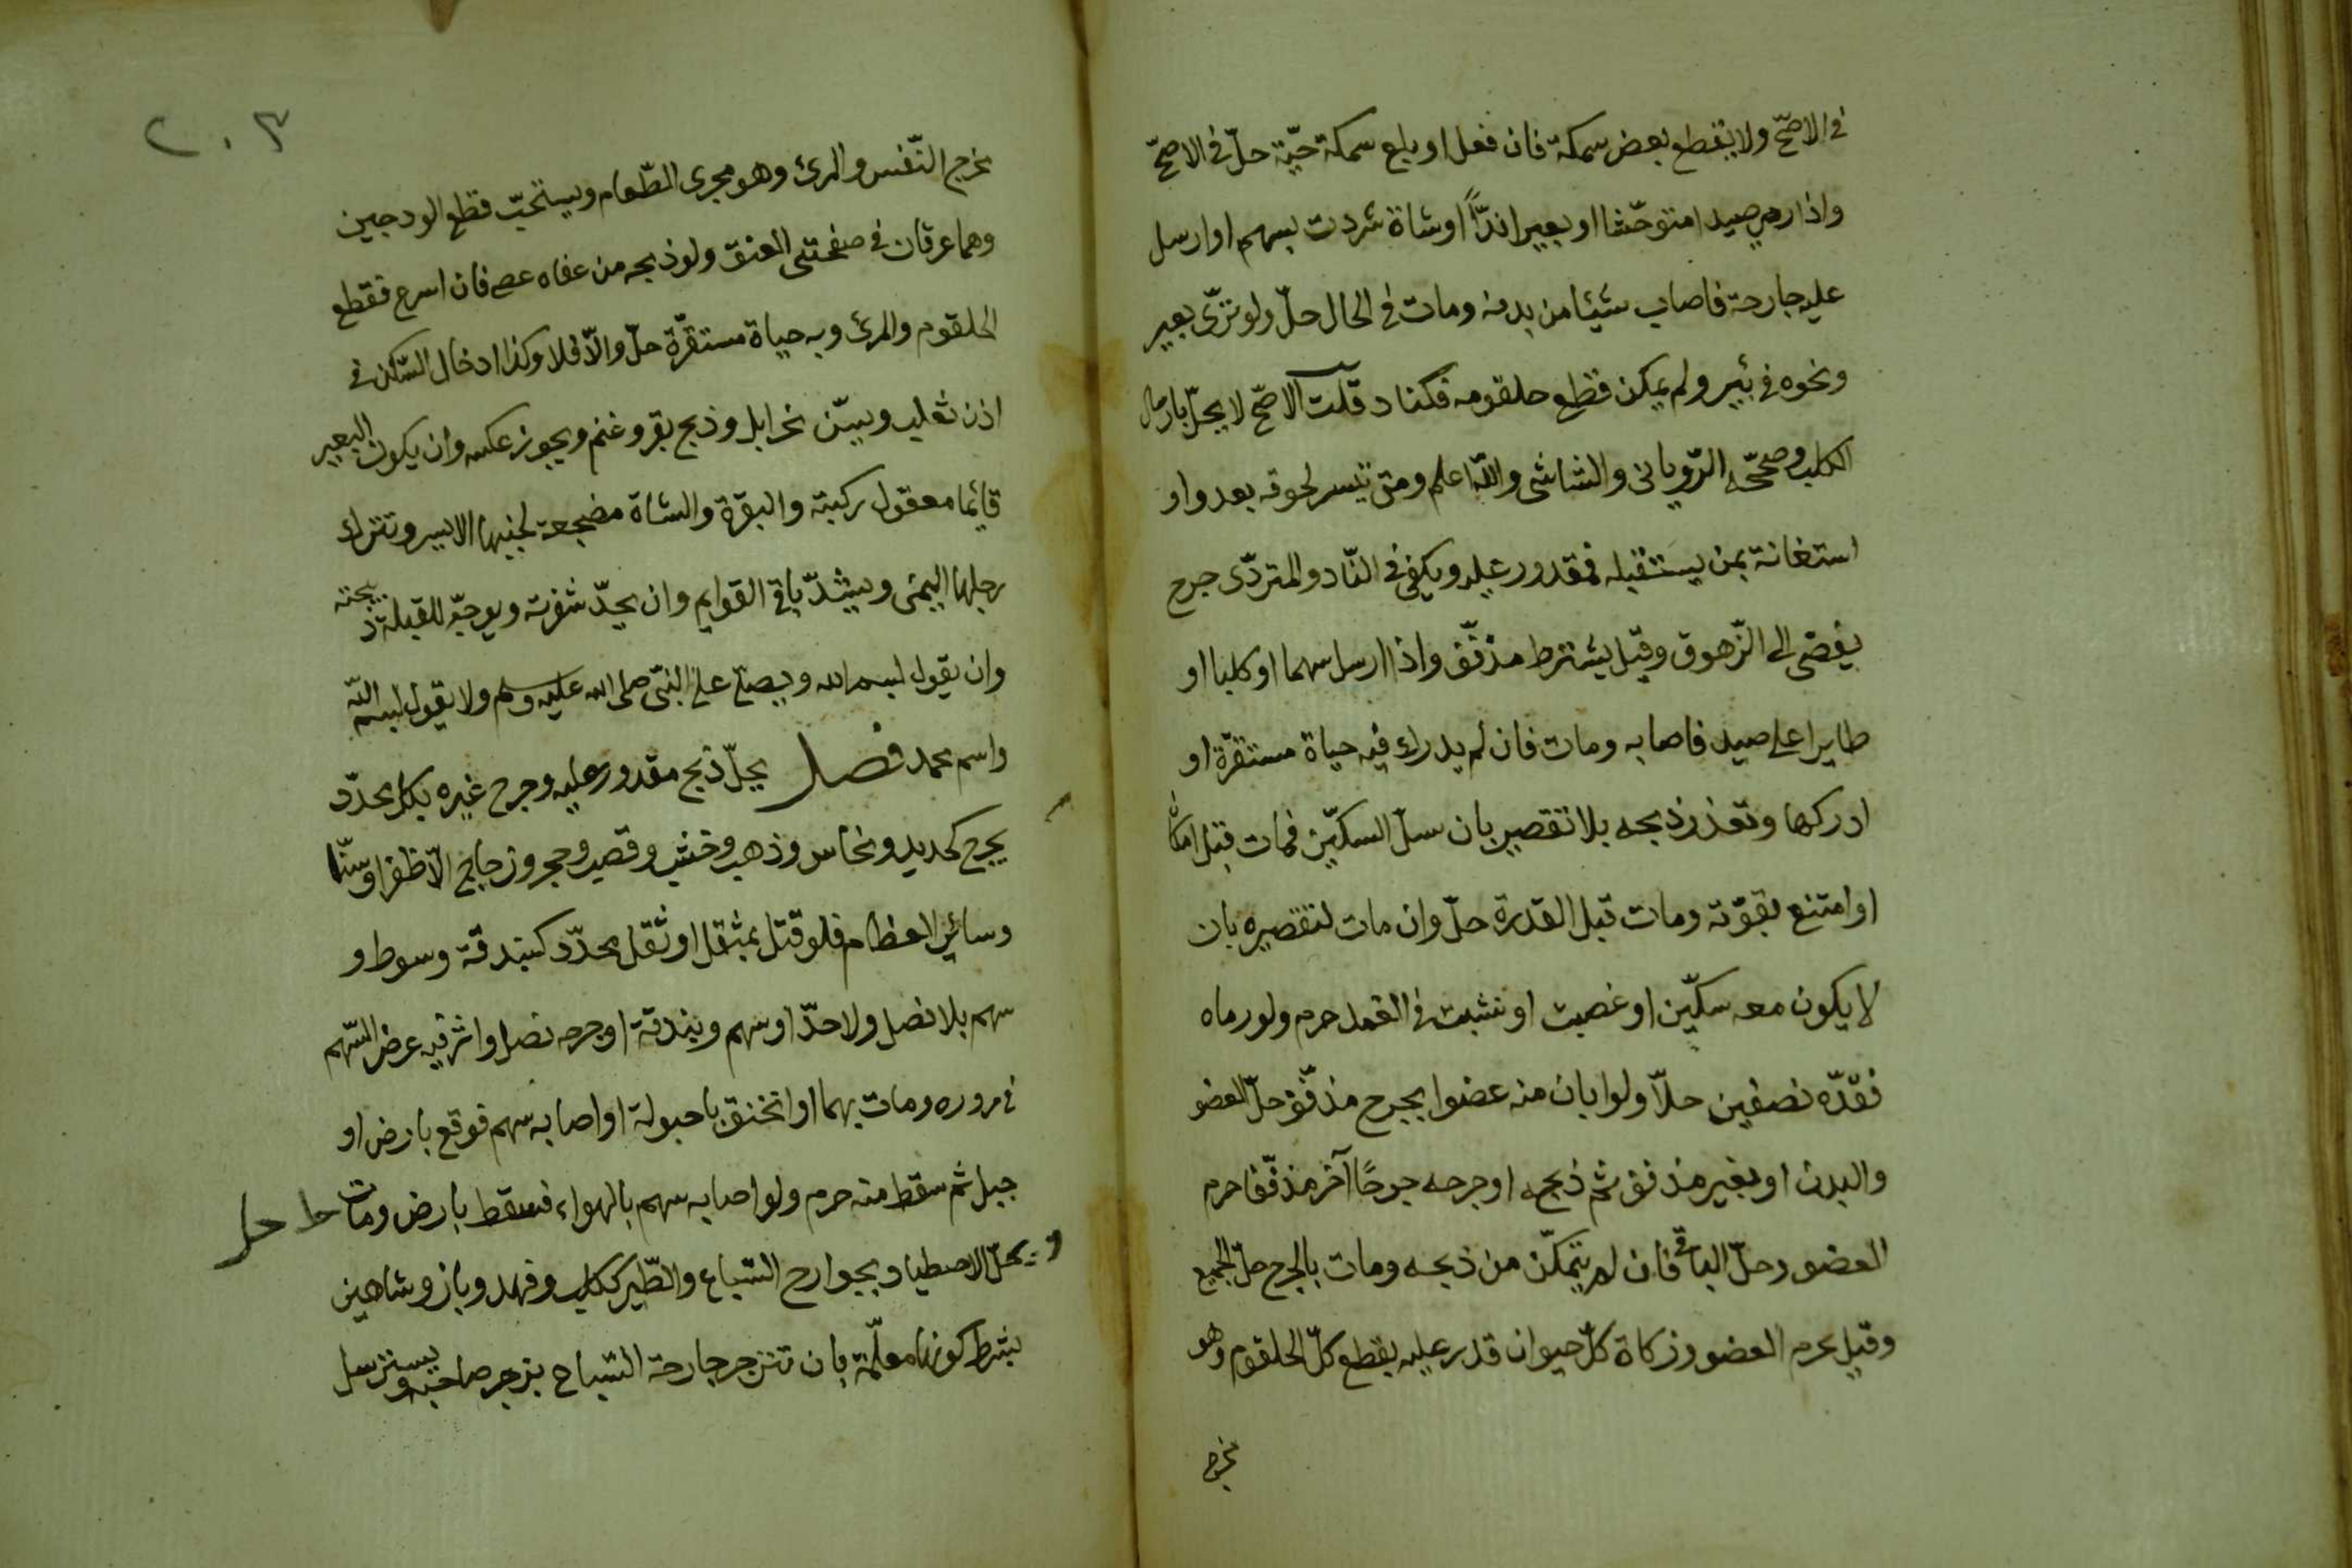 في الاصحّ ولا يقطع بعض سمكة فان فعل او بلع سمكة حيّة حلّ في الاصحّ
واذا رمي صيدا متوحّشا او بعيرا ندّاً او شاة شردت بسهم او ارسل
عليه جارحة فاصاب شيئا من بدنه ومات في الحال حلّ ولو تردّى بعير
ونحوه في بئير ولم يمكن قطع حلقومه فكناد قلت الاصحّ لا يحلّ بارسال
الكلب وصححّه الرّوياني والشاشي واللّه اعلم ومتى تيسر لحوقه بعدو او
استغانة بمن يستقبله فمقدور عليه ويكفي في النّاد والمتردّى جرح
يفضي الى الزّهوق وقيل يشترط مذفّف واذا ارسل سهما او كلبا او
طايرا على صيد فاصابه ومات فان لم يدرك فيه حياة مستقرّة او
ادركها وتعذر ذبحه بلا تقصير بان سلّ السكّين فمات قبل امكان
او امتنع بقوّته ومات قبل القدرة حلّ وان مات لتقصيره بان
لا يكون معه سكّين او غصبت او نشبت في الغمد حرم ولو رماه
فقدّه نصفين حلاّ ولو ابان منه عضوا بجرح مذفّف حلّ العضو
والبدن او بغير مذفف ثم ذبحه او جرحه جرحًا آخر مذفّفا حرم
العضو وحلّ الباقي فان لم يتمكّن من ذبحه ومات بالجرح حلّ الجميع
وقيل يحرم العضو وزكاة كلّ حيوان قدر عليه بقطع كلّ الحلقوم وهو
مخرج
٢٠٣
مخرج النّفس والمرئ وهو مجرى الطّعام ويستحبّ قطع الودجين
وهما عرقان في صفحتي العنق ولو ذبحه من عفاه عصي فان اسرع فقطع
الحلقوم والمرئ وبه حياة مستقرّة حلّ والاّ فلا وكذا ادخال السّكين في
اذن ثعلب ويسنّ نحر ابل وذبح بقر وغنم ويجوز عكسه وان يكون البعير
قائما معقول ركبته والبقرة والشاة مضجعة لجنبها الايسر وتترك
رجلها اليمنى ويشدّ باقي القوايم وان يحدّ شفرته ويوجّه للقبلة ذبيحته
وان يقول بسم الله ويصلّي على النبيّ صلى الله عليه وسلم ولا يقول بسم اللّه
واسم محمد فصل يحلّ ذبح مقدور عليه وجرح غيره بكل محدّد
يجرح كحديد ونحاس وذهب وخشب وقصب وحجر وزجاج الاّ ظفرا وسنّا
وسائر العظام فلو قتل بمثقل او ثقل محدّد كبندقة وسوط و
سهم بلا نصل ولا حدّ او سهم وبندقة او جرحه نصل واثر فيه عرض السّهم
في مروره ومات بهما او انخنق باحبولة او اصابه سهم فوقع بارض او
جبل ثم سقط منه حرم ولو اصابه سهم بالهواء فسقط بارض ومات حل
و يحلّ الاصطياد بجوارح السّباع والطّير ككلب وفهد وباز وشاهين
بشرط كونها معلّمة بان تنزجر جارحة السّباع بزجر صاحبه ويسترسل